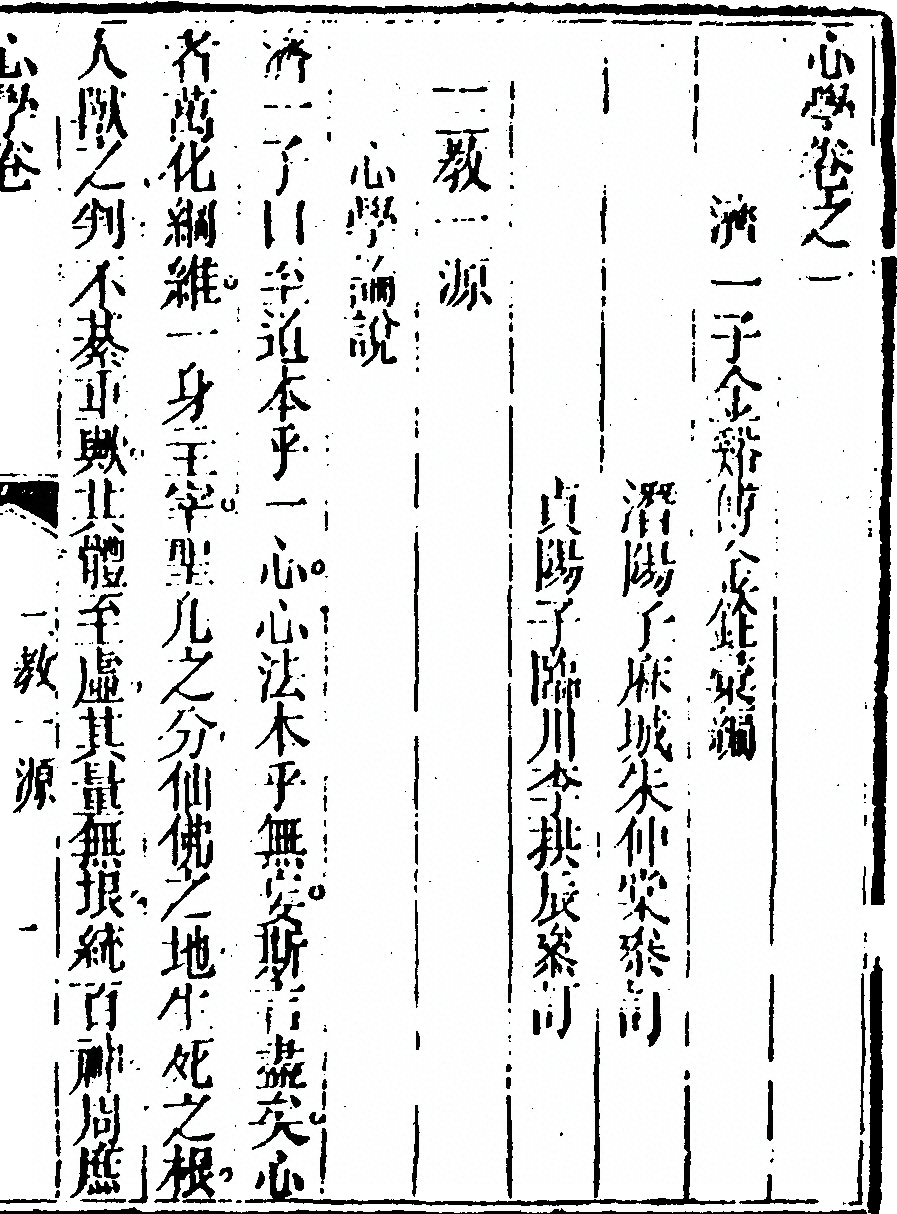 心學卷之一
濟一子金谿傅金銓彙編
潛陽子麻城朱仲棠叅訂
貞陽子臨川李拱辰叅訂
三教一源
心學論說
濟一子曰至道本乎一心心法本乎無妄斯言盡矣心
者萬化綱維一身主宰聖凡之分仙佛之地生死之根
人獸之判不綦重歟其體至虛其量無垠統百神周庶
心學卷 三教一源 一